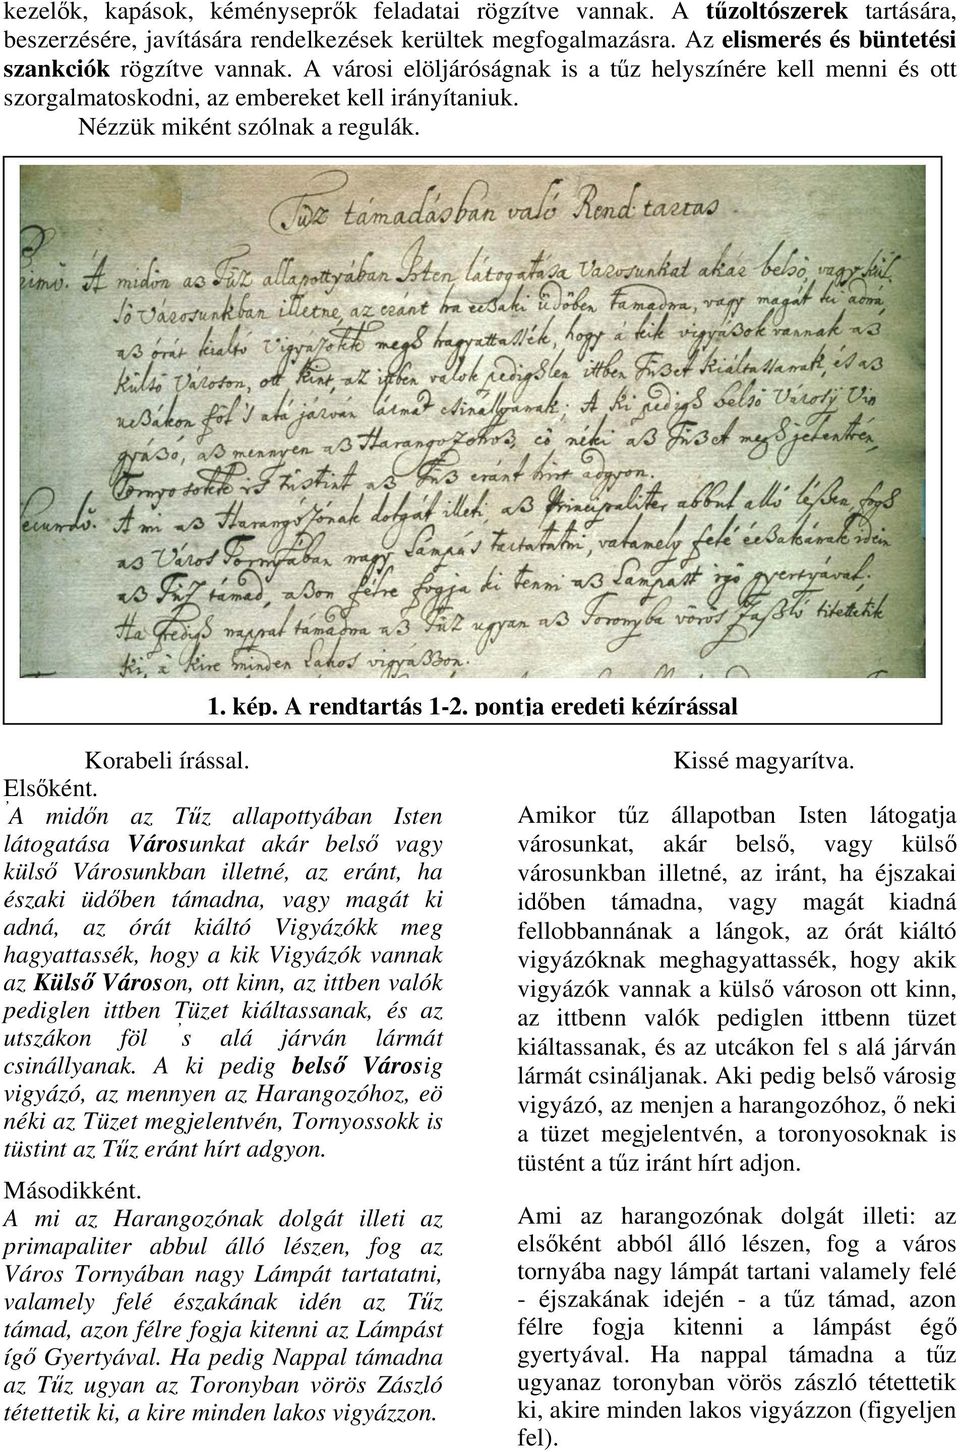 kezelők, kapások, kéményseprők feladatai rögzítve vannak. A tűzoltószerek tartására,
beszerzésére, javítására rendelkezések kerültek megfogalmazásra. Az elismerés és büntetési
szankciók rögzítve vannak. A városi elöljáróságnak is a tűz helyszínére kell menni és ott
szorgalmatoskodni, az embereket kell irányítaniuk.
Nézzük miként szólnak a regulák.
Tűz támadásban való Rend tartas
Primő. A midőn as Tűz allapottyában Isten látogatása Varosunkat akár belső, vagy kül
ső Városunkban illetne, az eránt, ha éczaki üdőben tamadna, vagy magát ki adná,
az órát kialtó Vigyázokk meg hagyattassék, hogy á kik vigyázok vannak az
Külső Városon, ott kint, az ittben valok pedigslen ittben Tüzet kiáltassanak, és az
uczákon föl 's alá járván lármát csinállyanak; A ki pedigs belső Városig Vi
gyázó, az mennyen az Harangozohoz, eö néki az Tüzet megjelentvén,
Tornyosokk is tüstint az Tűz eránt hirt adgyon.
Secundő. A mi az Harangózónak dolgát illeti, az Principaliter abbul alló lészen, fogs
az Város Tornyában nagy Lampás tartatatni, valamely felé éczakának idein
az Tűz támad, azon félre fogja ki tenni az Lampast igő gyertyával.
Ha pedigs nappal támadna az Tűz ugyan az Toronyba vörös Zaszló titettetik
ki, a kire minden Lakos vigyázzon.
1. kép. A rendtartás 1-2. pontja eredeti kézírással
Korabeli írással.
Elsőként.
'A midőn az Tűz allapottyában Isten
látogatása Városunkat akár belső vagy
külső Városunkban illetné, az eránt, ha
északi üdőben támadna, vagy magát ki
adná, az órát kiáltó Vigyázókk meg
hagyattassék, hogy a kik Vigyázók vannak
az Külső Városon, ott kinn, az ittben valók
pediglen ittben Tüzet kiáltassanak, és az
utszákon föl 's alá járván lármát
csinállyanak. A ki pedig belső Városig
vigyázó, az mennyen az Harangozóhoz, eö
néki az Tüzet megjelentvén, Tornyossokk is
tüstint az Tűz eránt hírt adgyon.
Másodikként.
A mi az Harangozónak dolgát illeti az
primapaliter abbul álló lészen, fog az
Város Tornyában nagy Lámpát tartatatni,
valamely felé északának idén az Tűz
támad, azon félre fogja kitenni az Lámpást
ígő Gyertyával. Ha pedig Nappal támadna
az Tűz ugyan az Toronyban vörös Zászló
tétettetik ki, a kire minden lakos vigyázzon.
Kissé magyarítva.
Amikor tűz állapotban Isten látogatja
városunkat, akár belső, vagy külső
városunkban illetné, az iránt, ha éjszakai
időben támadna, vagy magát kiadná
fellobbannának a lángok, az órát kiáltó
vigyázóknak meghagyattassék, hogy akik
vigyázók vannak a külső városon ott kinn,
az ittbenn valók pediglen ittbenn tüzet
kiáltassanak, és az utcákon fel s alá járván
lármát csináljanak. Aki pedig belső városig
vigyázó, az menjen a harangozóhoz, ő neki
a tüzet megjelentvén, a toronyosoknak is
tüstént a tűz iránt hírt adjon.
Ami az harangozónak dolgát illeti: az
elsőként abból álló lészen, fog a város
tornyába nagy lámpát tartani valamely felé
- éjszakának idején - a tűz támad, azon
félre fogja kitenni a lámpást égő
gyertyával. Ha nappal támadna a tűz
ugyanaz toronyban vörös zászló tétettetik
ki, akire minden lakos vigyázzon (figyeljen
fel).